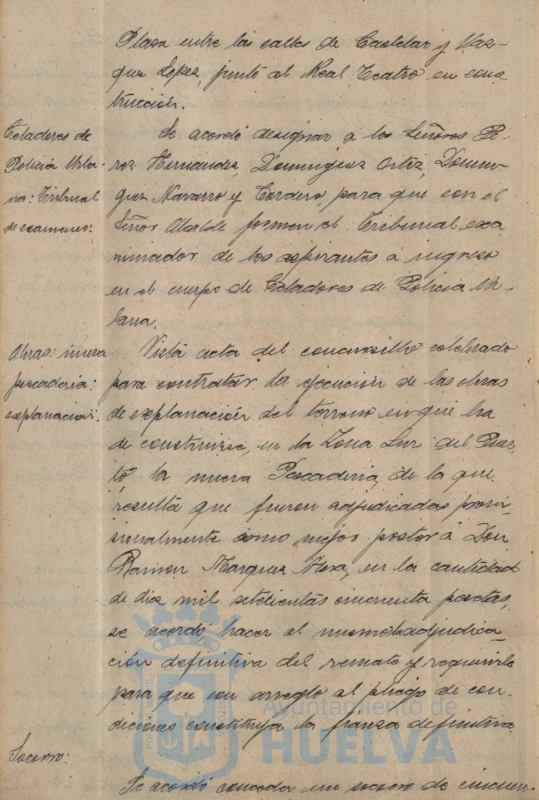 Plaza entre las calles de Castelar y Vaz-
quez Lopez, junto al Real Teatro en cons
trucción.
Celadores de
Policia Urba-
na: Tribunal
de examenes:
Se acordó designar a los Señores Pe-
rez Hernandez, Dominguez Ortiz, Domin-
guez Navarro y Cordero, para que con el
Señor Alcalde formen el Tribunal exa
minador de los aspirantes a ingreso
en el cuerpo de Celadores de Policia Ur-
bana.
Obras: nueva
pescaderia:
explanacion:
Vista acta del concursillo celebrado
para contratar la ejecución de las obras
de explanación del terreno en que ha
de construirse, en la Zona Sur del Puer-
to la nueva Pescaderia, de la que
resulta que fueron adjudicadas provi-
sionalmente como mejor postor a Don
Ramon Marquez, en la cantidad
de diez mil setecientas cincuenta pesetas,
se acordó, hacer al mismo adjudica-
ción definitiva del remate y requerirle
para que con arreglo al pliego de con-
diciones constituya la fianza definitiva.
Socorro:
Se acordó conceder un socorro de cincuen-
Ayuntamiento de
HUELVA